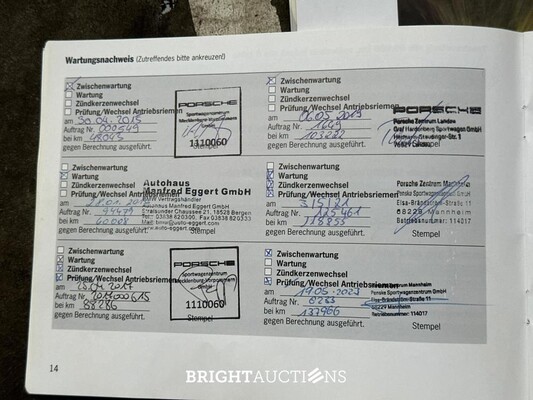 Wartungsnachweis (Zutreffendes bitte ankreuzen!)
Zwischenwartung
Wartung
Zündkerzenwechsel
Prüfung/Wechsel Antriebsriemen
am 30.04.2015
Auftrag Nr. 000549
bei km
gegen Berechnung ausgeführt.
PORSCHE
Sportwagenzentrum
1110060
Stempel
Zwischenwartung
Wartung
Zündkerzenwechsel
Prüfung/Wechsel Antriebsriemen
am 06.03.2019
Auftrag Nr. 1649
bei km 103222
gegen Berechnung ausgeführt.
PORSCHE
Porsche Zentrum Landau
Graf Hardenberg Sportwagen GmbH
Stempel
Zwischenwartung
Wartung
Zündkerzenwechsel
Prüfung/Wechsel Antriebsriemen
am
Auftrag Nr. 94479
bei km
gegen Berechnung ausgeführt.
Autohaus
Manfred Eggert GmbH
BMW Vertragshändler
Stralsunder Chaussee 21, 18528 Bergen
Stempel
Zwischenwartung
Wartung
Zündkerzenwechsel
Prüfung/Wechsel Antriebsriemen
am 3/5/21
Auftrag Nr. 1125461
bei km 118853
gegen Berechnung ausgeführt.
Porsche Zentrum Mannheim
Penske Sportwagenzentrum GmbH
Elsa-Brändström-Straße 11
68229 Mannheim
Betriebsnummer: 114017
Stempel
Zwischenwartung
Wartung
Zündkerzenwechsel
Prüfung/Wechsel Antriebsriemen
am
Auftrag Nr. 2017000615
bei km 88286
gegen Berechnung ausgeführt.
PORSCHE
Sportwagenzentrum
Mecklenburg-Vorpommern
1110060
Stempel
Zwischenwartung
Wartung
Zündkerzenwechsel
Prüfung/Wechsel Antriebsriemen
am 19.05.2023
Auftrag Nr. 6233
bei km 137966
gegen Berechnung ausgeführt.
Porsche Zentrum Mannheim
Penske Sportwagenzentrum GmbH
Elsa-Brändström-Straße 11
68229 Mannheim
Betriebsnummer: 114017
Stempel
14
BRIGHTAUCTIONS